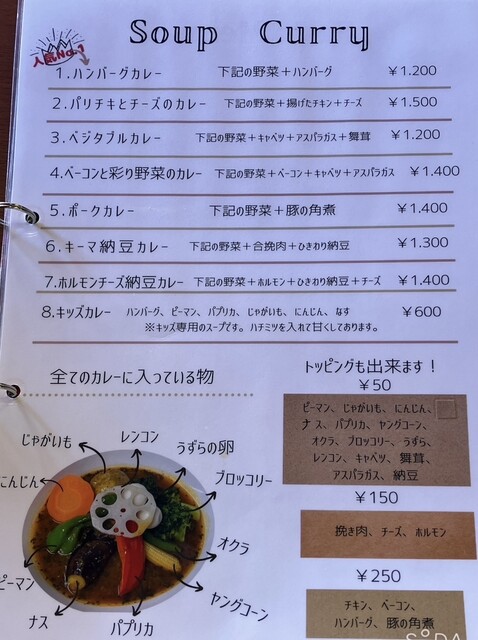 Soup Curry
人気No.1
1.ハンバーグカレー 下記の野菜+ハンバーグ ¥1.200
2.パリチキとチーズのカレー 下記の野菜+揚げたチキン+チーズ ¥1.500
3.ベジタブルカレー 下記の野菜+キャベツ+アスパラガス+舞茸 ¥1.200
4.ベーコンと彩り野菜のカレー 下記の野菜+ベーコン+キャベツ+アスパラガス ¥1.400
5.ポークカレー 下記の野菜+豚の角煮 ¥1.400
6.キーマ納豆カレー 下記の野菜+合挽肉+ひきわり納豆 ¥1.300
7.ホルモンチーズ納豆カレー 下記の野菜+ホルモン+ひきわり納豆+チーズ ¥1.400
8.キッズカレー ハンバーグ、ピーマン、パプリカ、じゃがいも、にんじん、なす ¥600
※キッズ専用のスープです。ハチミツを入れて甘くしております。
全てのカレーに入っている物
じゃがいも
レンコン
うずらの卵
にんじん
ブロッコリー
オクラ
ピーマン
ヤングコーン
ナス
パプリカ
トッピングも出来ます!
¥50
ピーマン、じゃがいも、にんじん、
ナス、パプリカ、ヤングコーン、
オクラ、ブロッコリー、うずら、
レンコン、キャベツ、舞茸、
アスパラガス、納豆
¥150
挽き肉、チーズ、ホルモン
¥250
チキン、ベーコン、
ハンバーグ、豚の角煮
SODA